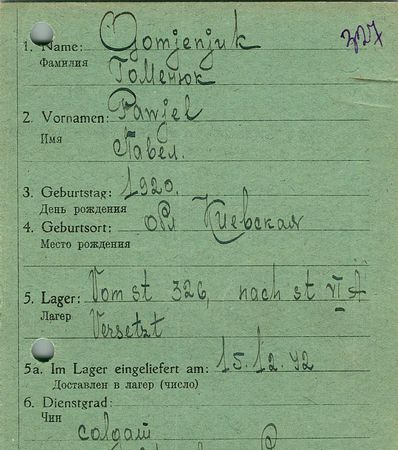 327
1. Name: Gomjenjuk
Фамилия Гоменюк
2. Vornamen: Pawjel
Имя Павел.
3. Geburtstag: 1920.
День рождения
4. Geburtsort: обл Киевская
Место рождения
5. Lager: Vom st 326, nach st VI A
Лагер Versetzt
5a. Im Lager eingeliefert am: 15.12.42
Доставлен в лагер (число)
6. Dienstgrad:
Чин